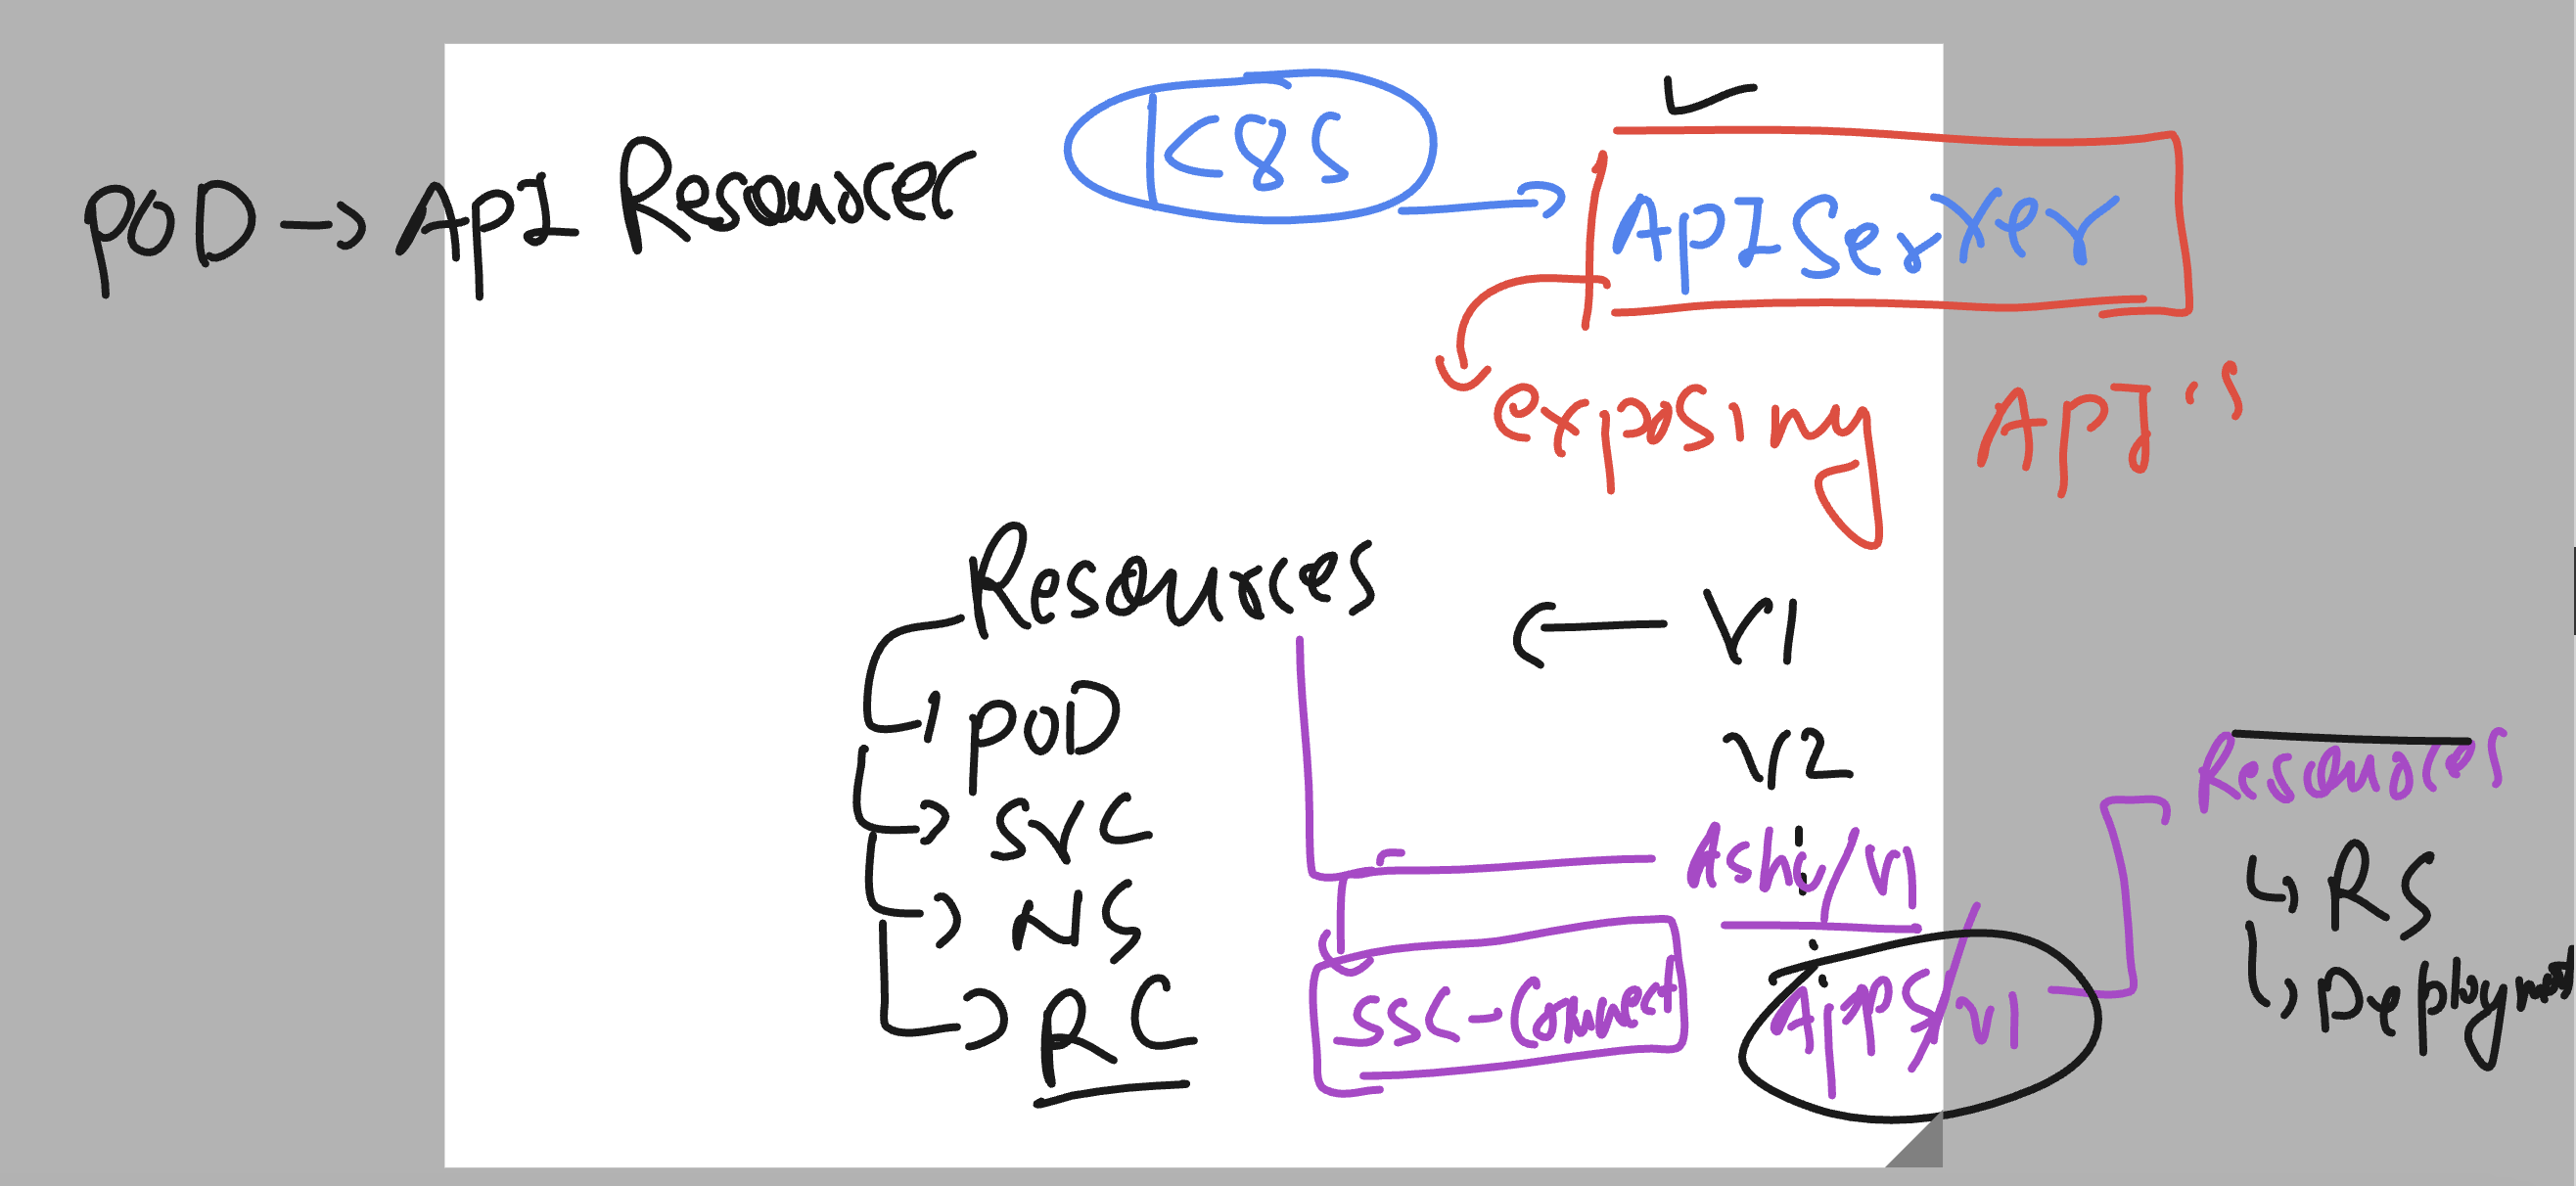 POD → ApI Resources
K8S → ApI Server
exposing ApI's
Resources ← V1
POD
V2
SVC
Ashu/v1
NS
RC
SSC-Connect
Apps/v1
Resources
RS
Deployment